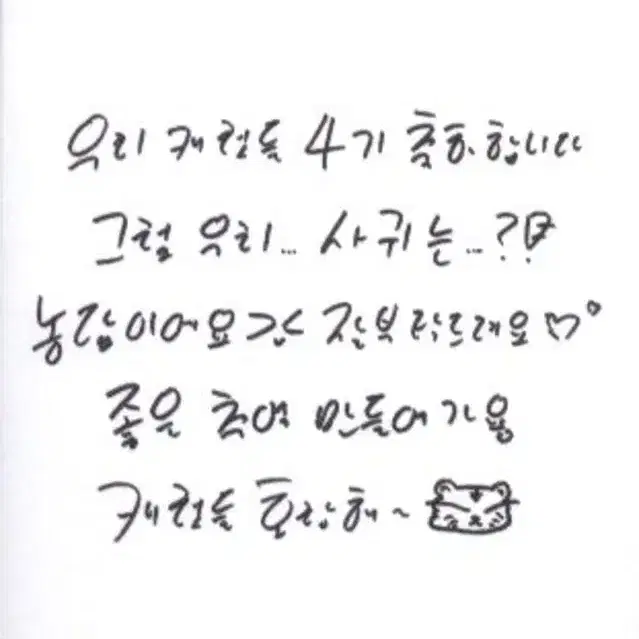 우리 캐럿들 4기 축하합니다
그럼 우리... 사귀는...??
농담이에요>.< 잘부탁드려요♡
좋은 추억 만들어가용
캐럿들 사랑해~